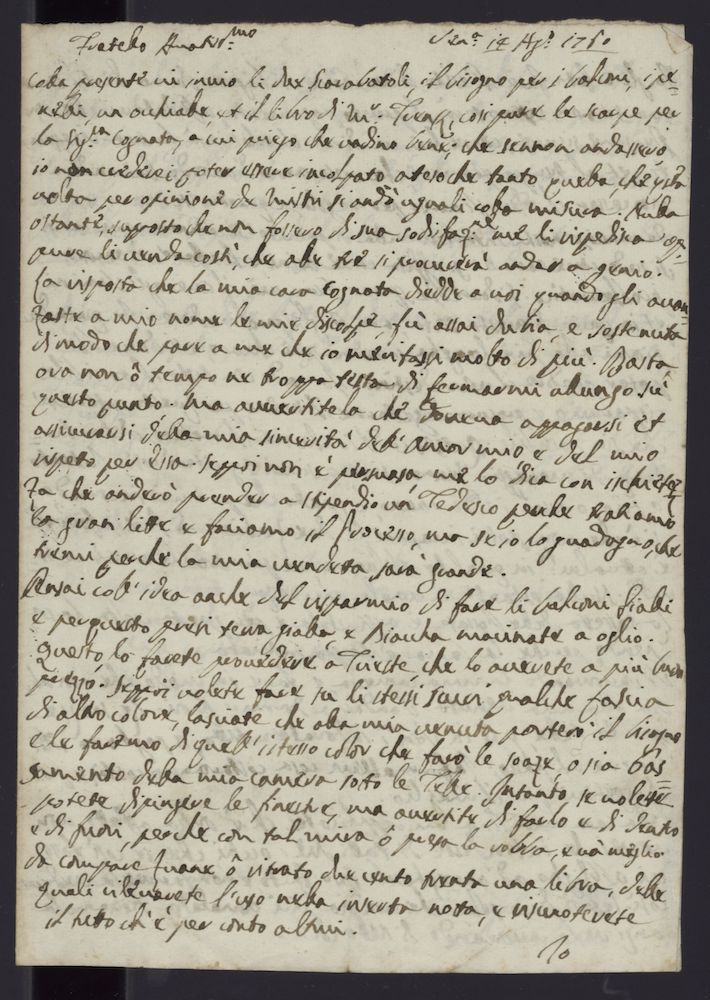 Fratello Amatis.mo
14 Ag.o 1750
Colla presente vi invio li due il bisogno per i balconi, i pe=
un occhiale et il libro di M.r così pure le scarpe per
la Sig.ra Cognata, a cui priego che vadino bene; che se non andassero
io non crederei poter essere incolpato atteso che tanto quella che q.sta
volta per opinione de Mistri si andò uguali colla misura. Nulla
ostante, suposto che non fossero di sua sodisfaz.ne me li rispedisca op=
pure li venda costì, che altre si procurerà andar a genio.
La risposta che la mia cara Cognata diedde a voi quando gli avan=
zaste a mio nome le mie discolpe, fù assai dubia, e sostenuta
di modo che pare a me che io meritassi molto di più. Basta
ora non ò tempo ne troppa testa di fermarmi a lungo sù
questo punto. Ma avvertitela che doveva appagarsi et
assicurarsi della mia sincerità dell' amor mio e del mio
rispeto per Essa. Seppoi non è persuasa me lo dica con ischietez=
za che anderò prender a stipendio un Tedesco perche tratiamo
la gran litte e faciamo il Processo, ma se io lo guadagno, che
tremi perche la mia vendeta sarà grande.
Pensai coll' idea anche del risparmio di fare li balconi gialli
e per questo presi terra gialla, e Biacha macinate a oglio.
Questo lo farete provedere a Trieste, che lo averete a più buon
prezzo. Seppoi volete fare su li stessi scuri qualche fascia
di altro colore, lasciate che alla mia venuta porterò il bisogno
e le faremo di quell' istesso color che farò le soaze, o sia bas=
samento della mia camera sotto le Telle. Intanto, se volete
potete dipingere le finestre, ma avertite di farlo e di dentro
e di fuori, perche con tal mira ò presa la robba, e và meglio
da compare Zuane ò ritirato due cento trenta una libra, delle
quali rileverete l'uso nella inserta nota, e riscuoterete
il tutto ch'è per conto altrui.
Io